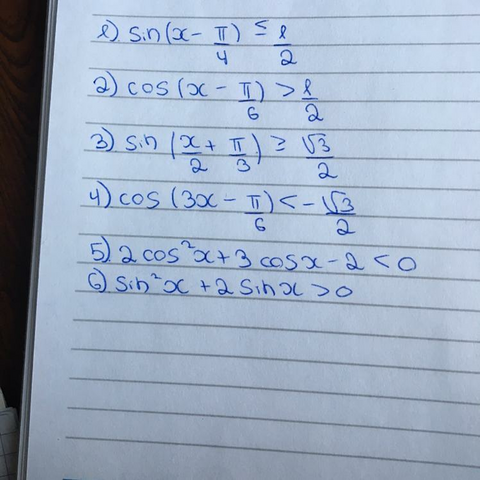 1) sin(x - π/4) ≤ 1/2
2) cos(x - π/6) > 1/2
3) sin(x/2 + π/3) ≥ √3/2
4) cos(3x - π/6) < -√3/2
5) 2cos²x + 3cosx - 2 < 0
6) sin²x + 2sinx > 0